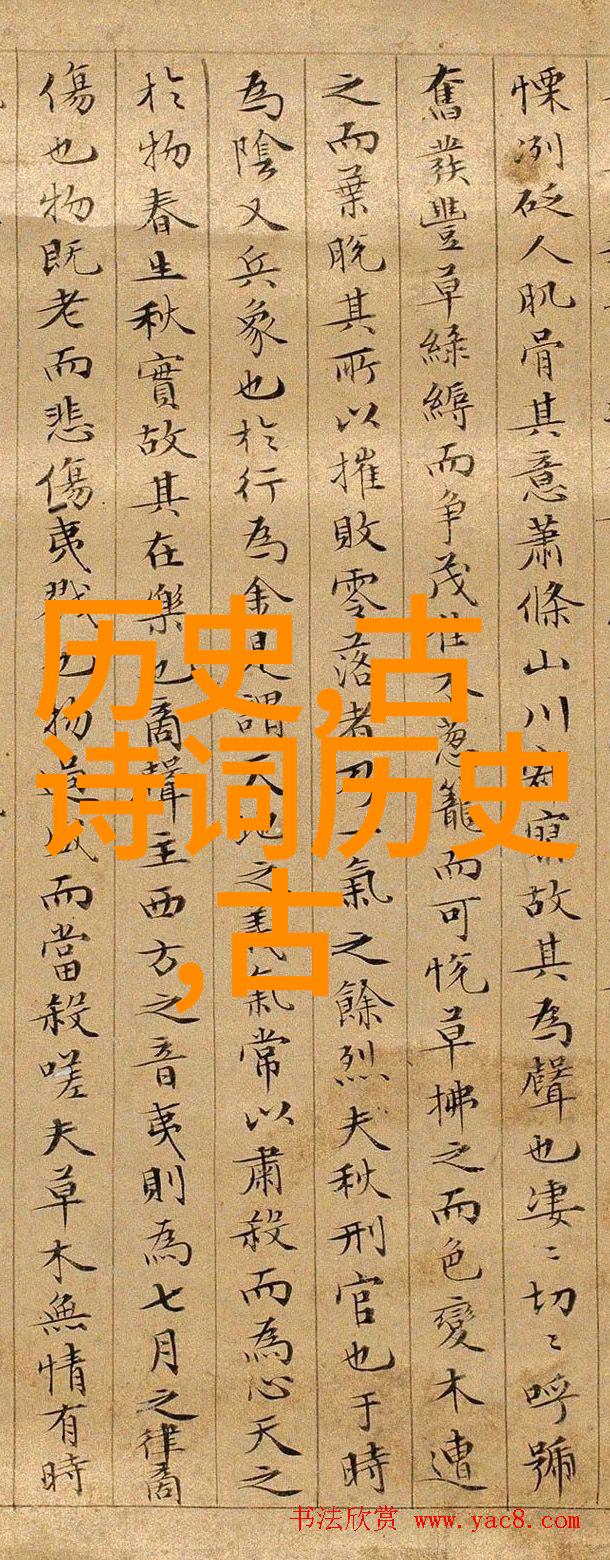 慄冽砭人肌骨其意蕭條山川寂寥故其為聲也淒〻切〻呼號
奮發豐草綠縟而爭茂佳木蔥籠而可悅草拂之而色變木遭
之而葉脫其所以摧敗零落者乃一氣之餘烈夫秋刑官也于時
為陰又兵象也於行為金是謂天地之義氣常以肅殺而為心天之
於物春生秋實故其在樂也商聲主西方之音夷則為七月之律商
傷也物既老而悲傷夷戮也物過盛而當殺嗟夫草木無情有時
历史,古
诗词历史
,古
书法欣赏 www.yac8.com